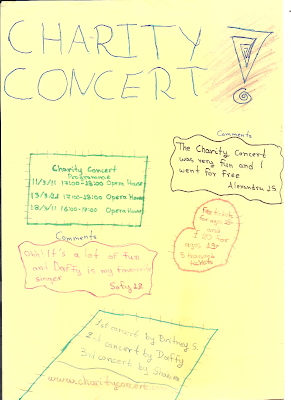 CHARITY
CONCERT
Comments
The Charity Concert
was very fun and I
went for free
Alexandru 15
Charity Concert
Programme
11/3/11 17:00-18:00 Opera House
13/3/11 17:00-18:00 Opera House
18/3/11 16:00-17:00 Opera House
for ages
and
£ 20 for
ages
tickets
Comments
Ohh! It's a lot of fun
and Daffy is my favourite
singer
Sofy 12
1st concert by Britney S.
2nd concert by Daffy
3rd concert by Shakira